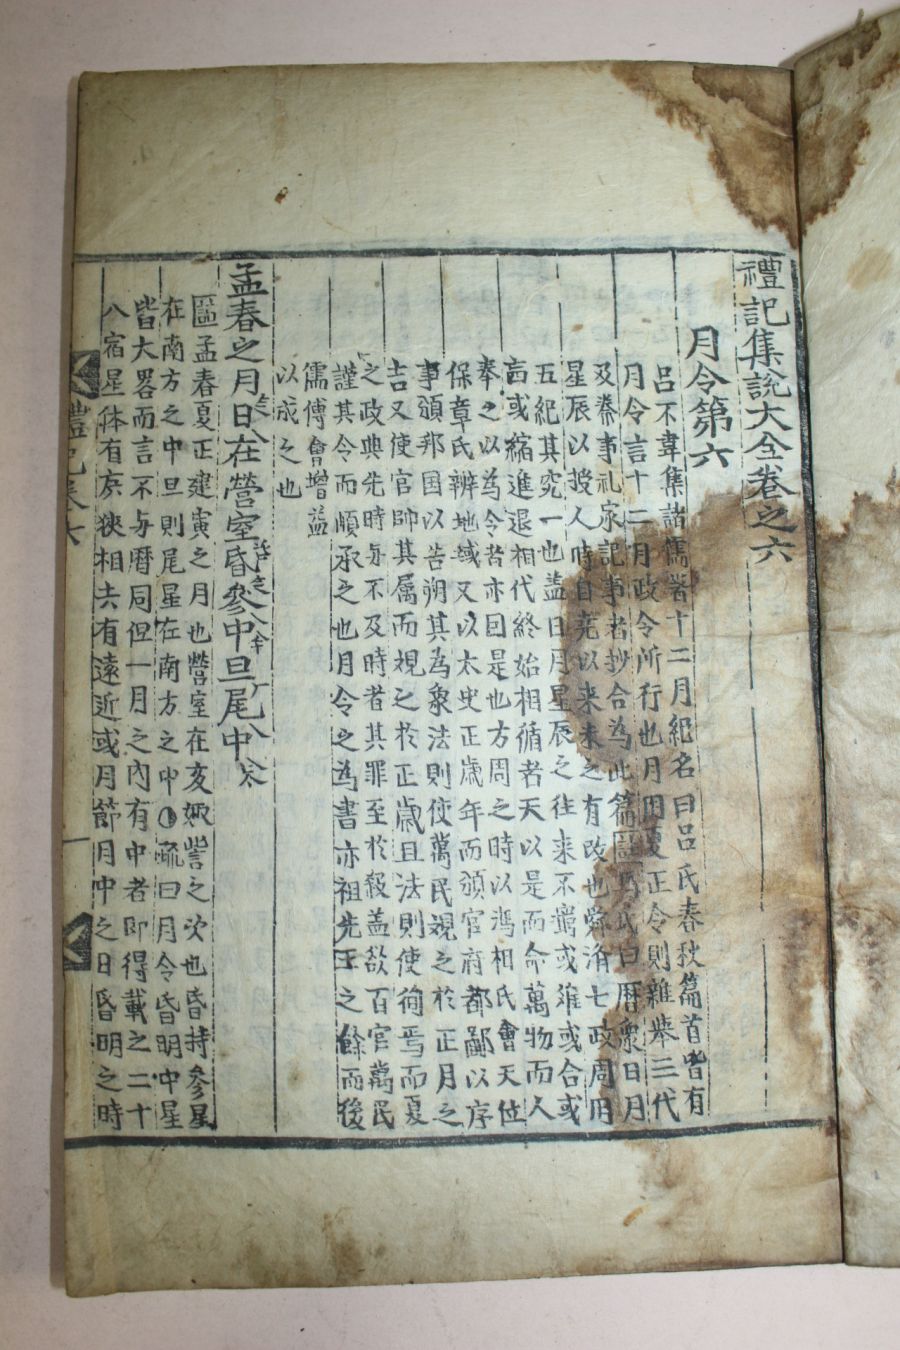 禮記集說大全卷之六
月令第六
呂不韋集諸儒著十二月紀名曰呂氏春秋篇首皆有
月令言十二月政令所行也月用夏正令則雜舉三代
及秦事礼家記事者抄合為此篇
星辰以授人時自堯以来未之有改也舜済七政周用
五紀其究一也盖日月星辰之往来不窮或離或合或
或縮進退相代終始相循者天以是而命萬物而人
奉之以為令者亦因是也方周之時以馮相氏會天位
保章氏辨地域又以太史正歲年而頒官府都鄙以序
事頒邦国以告朔其為象法則使萬民視之於正月之
吉又使官帥其属而視之於正歲且法則使徇焉而夏
之政典先時与不及時者其罪至於殺盖欲百官萬民
謹其令而順承之也月令之為書亦祖先王之餘而後
儒傅會增益
以成之也
孟春之月日在營室昏參中旦尾中
孟春夏正建寅之月也營室在亥娵訾之次也昏時參星
在南方之中旦則尾星在南方之中疏曰月令昏明中星
皆大畧而言不与曆同但一月之內有中者即得載之二十
八宿星体有広狹相去有遠近或月節月中之日昏明之時
禮記卷六
一